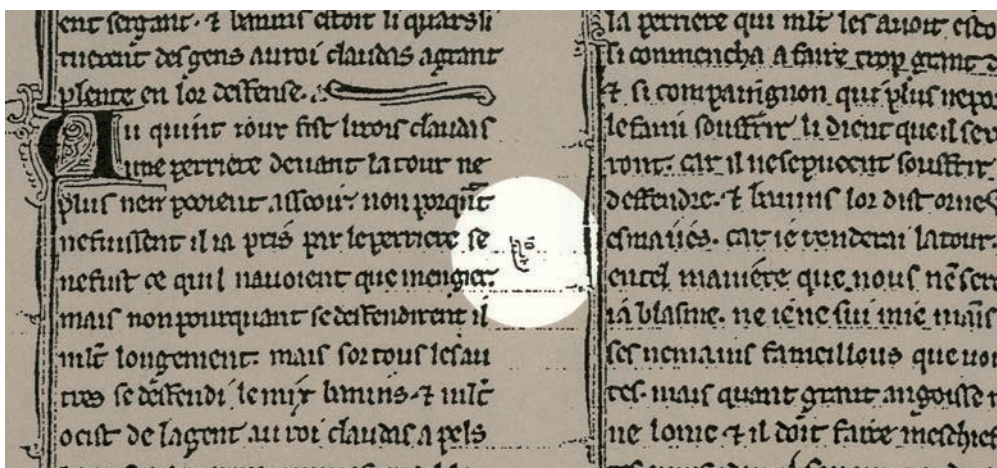 ent sergant. ⁊ banins estoit li quars si
tuerent des gens au roi claudas a grant
plente en lor deffense.
Au quint iour fist li rois claudas
une perriere devant la tour ne
plus nen pooient asseoir. non porqāt
ne fuissent il ia pris par le perriere se
ne fust ce quil navoient que mengier.
mais non pourquant se deffendirent il
mlt longement. mais sor tous les au
tres se deffendi le mix banins. ⁊ mlt
ocist de la gent au roi claudas a pels
la perriere qui mlt les avoit
si commencha a faire trop grant
⁊ si compaignon qui plus ne
le faim souffrir li dient que il
ront. car il ne se pueent souffrir
deffendre. ⁊ banins lor dist
esmaiés. car ie renderai la tour
en tel maniere que nous nē
ia blasme. ne ie ne sui mie mais
fameillous que
tes. mais quant grant angoisse
ne lome ⁊ il doit faire meschief